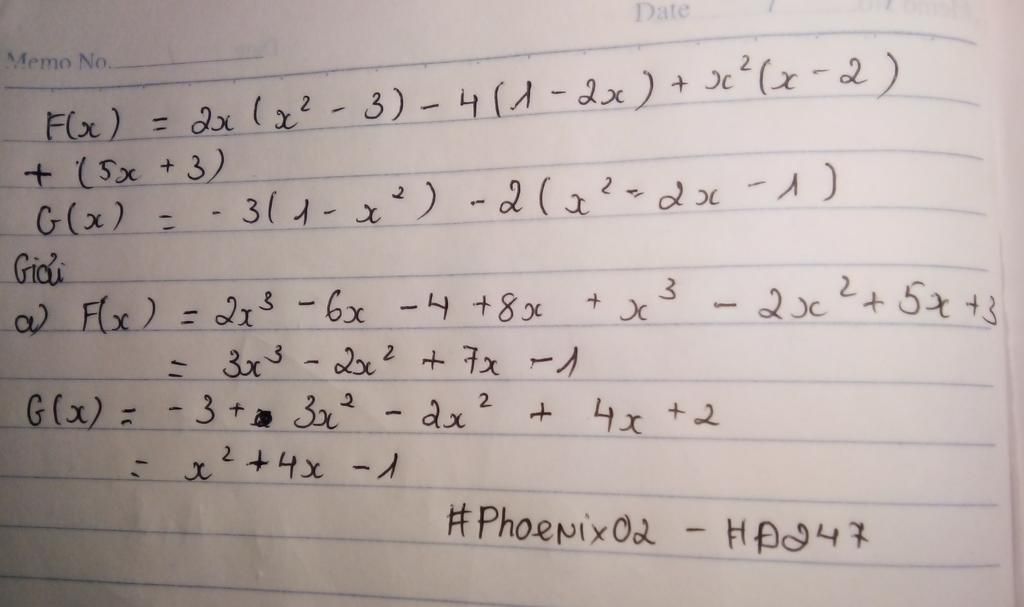 Date
Memo No.
F(x) = 2x(x² - 3) - 4(1 - 2x) + x²(x - 2)
+ (5x + 3)
G(x) = -3(1 - x²) - 2(x² - 2x - 1)
Giải
a) F(x) = 2x³ - 6x - 4 + 8x + x³ - 2x² + 5x + 3
= 3x³ - 2x² + 7x - 1
G(x) = -3 + 3x² - 2x² + 4x + 2
= x² + 4x - 1
#Phoenix02 - HĐ247